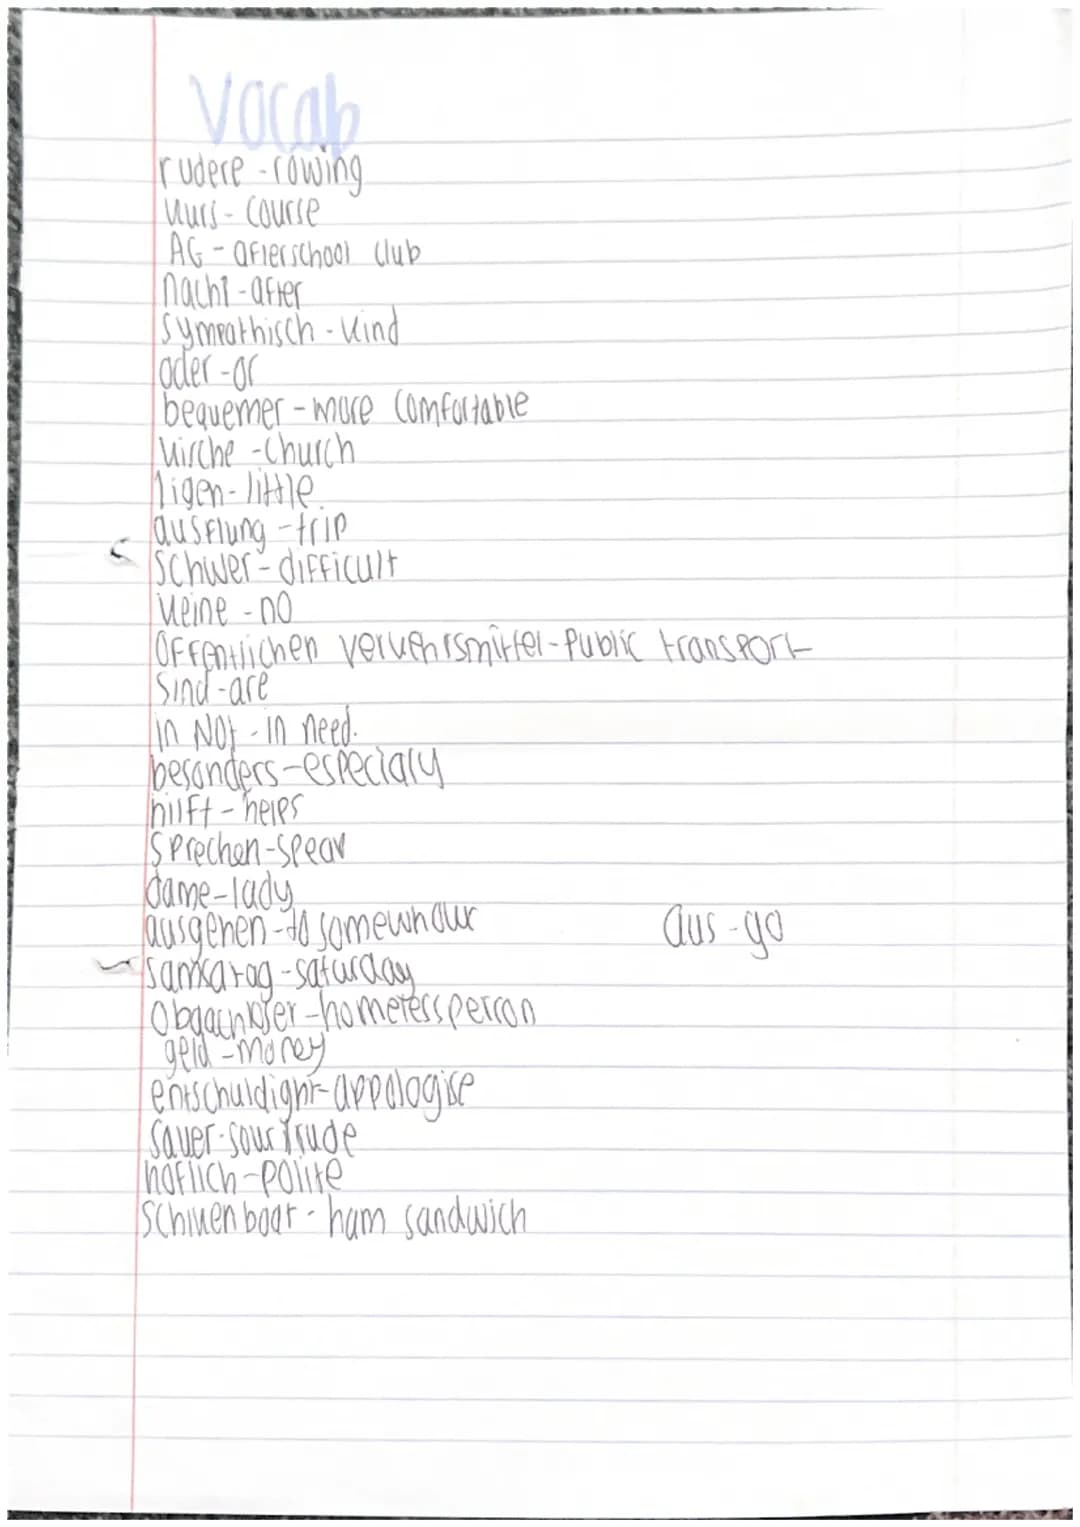 Vocab
rudere - rowing
Kurs - course
AG - afterschool club
nacht - after
sympathisch - kind
oder - or
bequemer - more comfortable
kirche - church
ligen - little
ausflung - trip
schwer - difficult
keine - no
Offentlichen verkehrsmittel - public transport
sind - are
in Not - in need.
besonders - especialy
hilft - helps
sprechen - speak
dame - lady
ausgehen - to somewhour aus - go
samsatag - saturday
Obdachloser - homeless person
geld - money
entschuldight - appologise
sauer - sour rude
hoflich - polite
schiken boat - ham sandwich